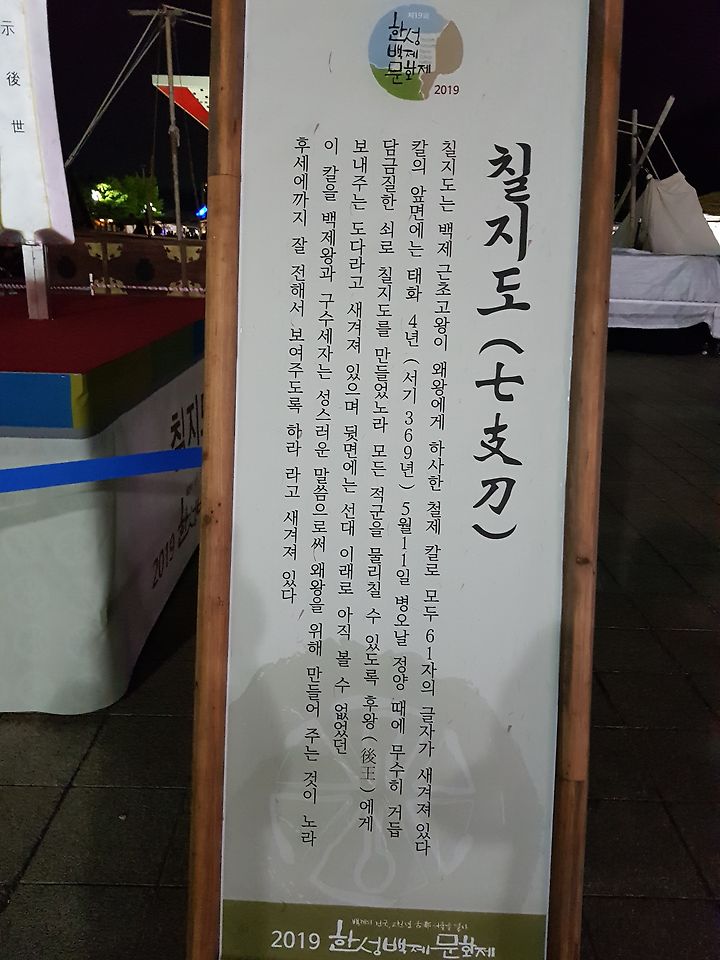 제19회
한성
백제
문화제
2019
칠지도(七支刀)
칠지도는 백제 근초고왕이 왜왕에게 하사한 철제 칼로 모두 61자의 글자가 새겨져 있다
칼의 앞면에는 태화 4년(서기 369년) 5월11일 병오날 정양 때에 무수히 거듭
담금질한 쇠로 칠지도를 만들었노라 모든 적군을 물리칠 수 있도록 후왕(後王)에게
보내주는 도다라고 새겨져 있으며 뒷면에는 선대 이래로 아직 볼 수 없었던
이 칼을 백제왕과 구수세자는 성스러운 말씀으로써 왜왕을 위해 만들어 주는 것이 노라
후세에까지 잘 전해서 보여주도록 하라 라고 새겨져 있다
2019 한성백제문화제
示後世
칠지도
2019 한